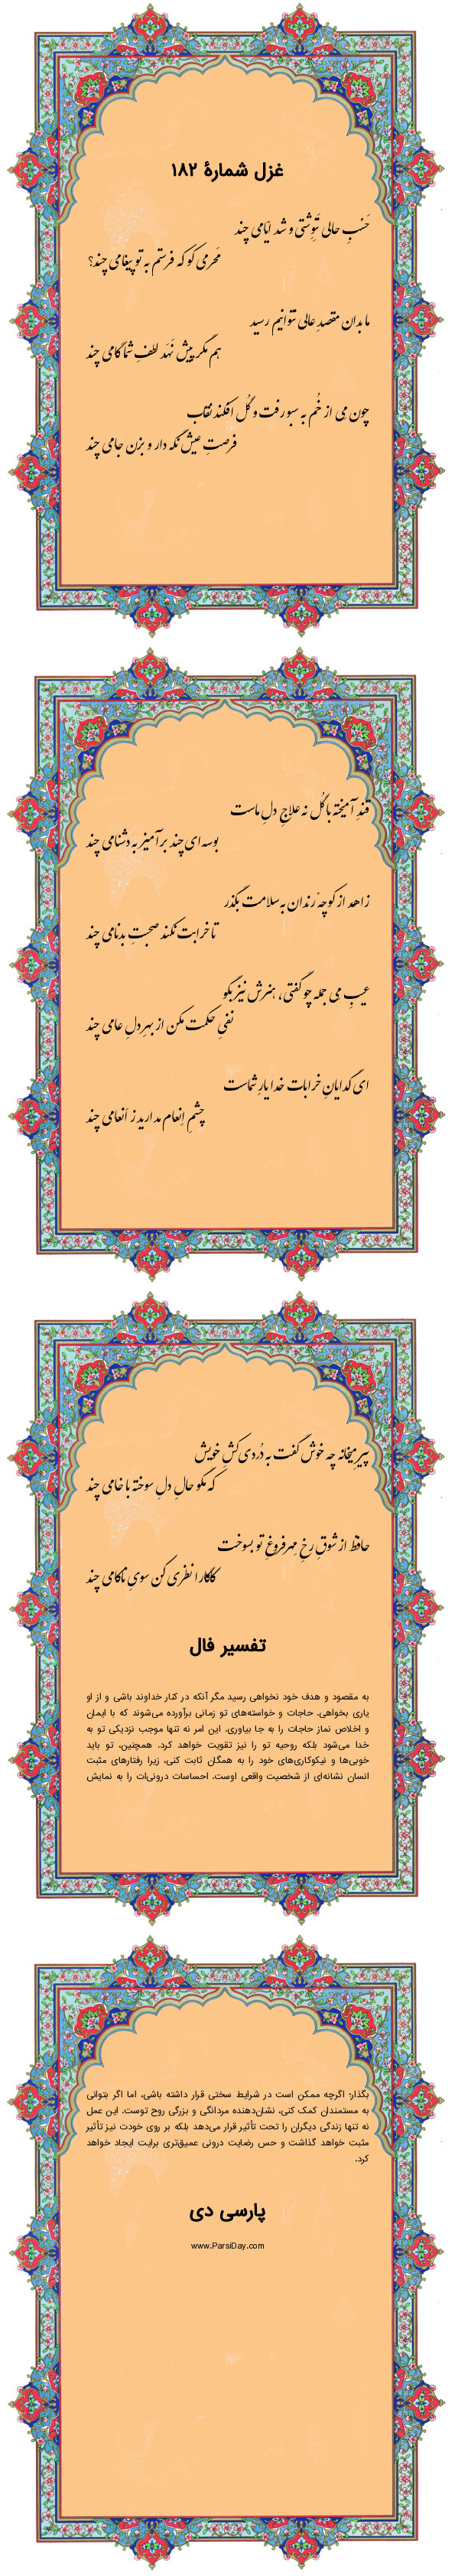 غزل شمارهٔ ۱۸۲
حَسْبِ حالی نَنِوِشتی و شد ایّامی چند
مَحرمی کو که فرستم به تو پیغامی چند؟
ما بدان مقصدِ عالی نتوانیم رسید
هم مگر پیش نَهَد لطفِ شما گامی چند
چون مِی از خُم به سبو رفت و گُل افکند نقاب
فرصتِ عیش نگه دار و بزن جامی چند
قندِ آمیخته با گُل نه علاجِ دلِ ماست
بوسه‌ای چند برآمیز به دشنامی چند
زاهد از کوچهٔ رندان به سلامت بگذر
تا خرابت نکند صحبتِ بدنامی چند
عیبِ می جمله چو گفتی، هنرش نیز بگو
نفیِ حکمت مکن از بهرِ دلِ عامی چند
ای گدایانِ خرابات خدا یارِ شماست
چشمِ اِنعام مدارید ز اَنعامی چند
پیرِ میخانه چه خوش گفت به دُردی‌کشِ خویش
که مگو حالِ دلِ سوخته با خامی چند
حافظ از شوقِ رخِ مِهر فروغِ تو بسوخت
کامگارا نظری کن سویِ ناکامی چند
تفسیر فال
به مقصود و هدف خود نخواهی رسید مگر آنکه در کنار خداوند باشی و از او
یاری بخواهی. حاجات و خواسته‌های تو زمانی برآورده می‌شوند که با ایمان
و اخلاص نماز حاجات را به جا بیاوری. این امر نه تنها موجب نزدیکی تو به
خدا می‌شود بلکه روحیه تو را نیز تقویت خواهد کرد. همچنین، تو باید
خوبی‌ها و نیکوکاری‌های خود را به همگان ثابت کنی، زیرا رفتارهای مثبت
انسان نشانه‌ای از شخصیت واقعی اوست. احساسات درونی‌ات را به نمایش
بگذار؛ اگرچه ممکن است در شرایط سختی قرار داشته باشی، اما اگر بتوانی
به مستمندان کمک کنی، نشان‌دهنده مردانگی و بزرگی روح توست. این عمل
نه تنها زندگی دیگران را تحت تأثیر قرار می‌دهد بلکه بر روی خودت نیز تأثیر
مثبت خواهد گذاشت و حس رضایت درونی عمیق‌تری برایت ایجاد خواهد
کرد.
پارسی دی
www.ParsiDay.com